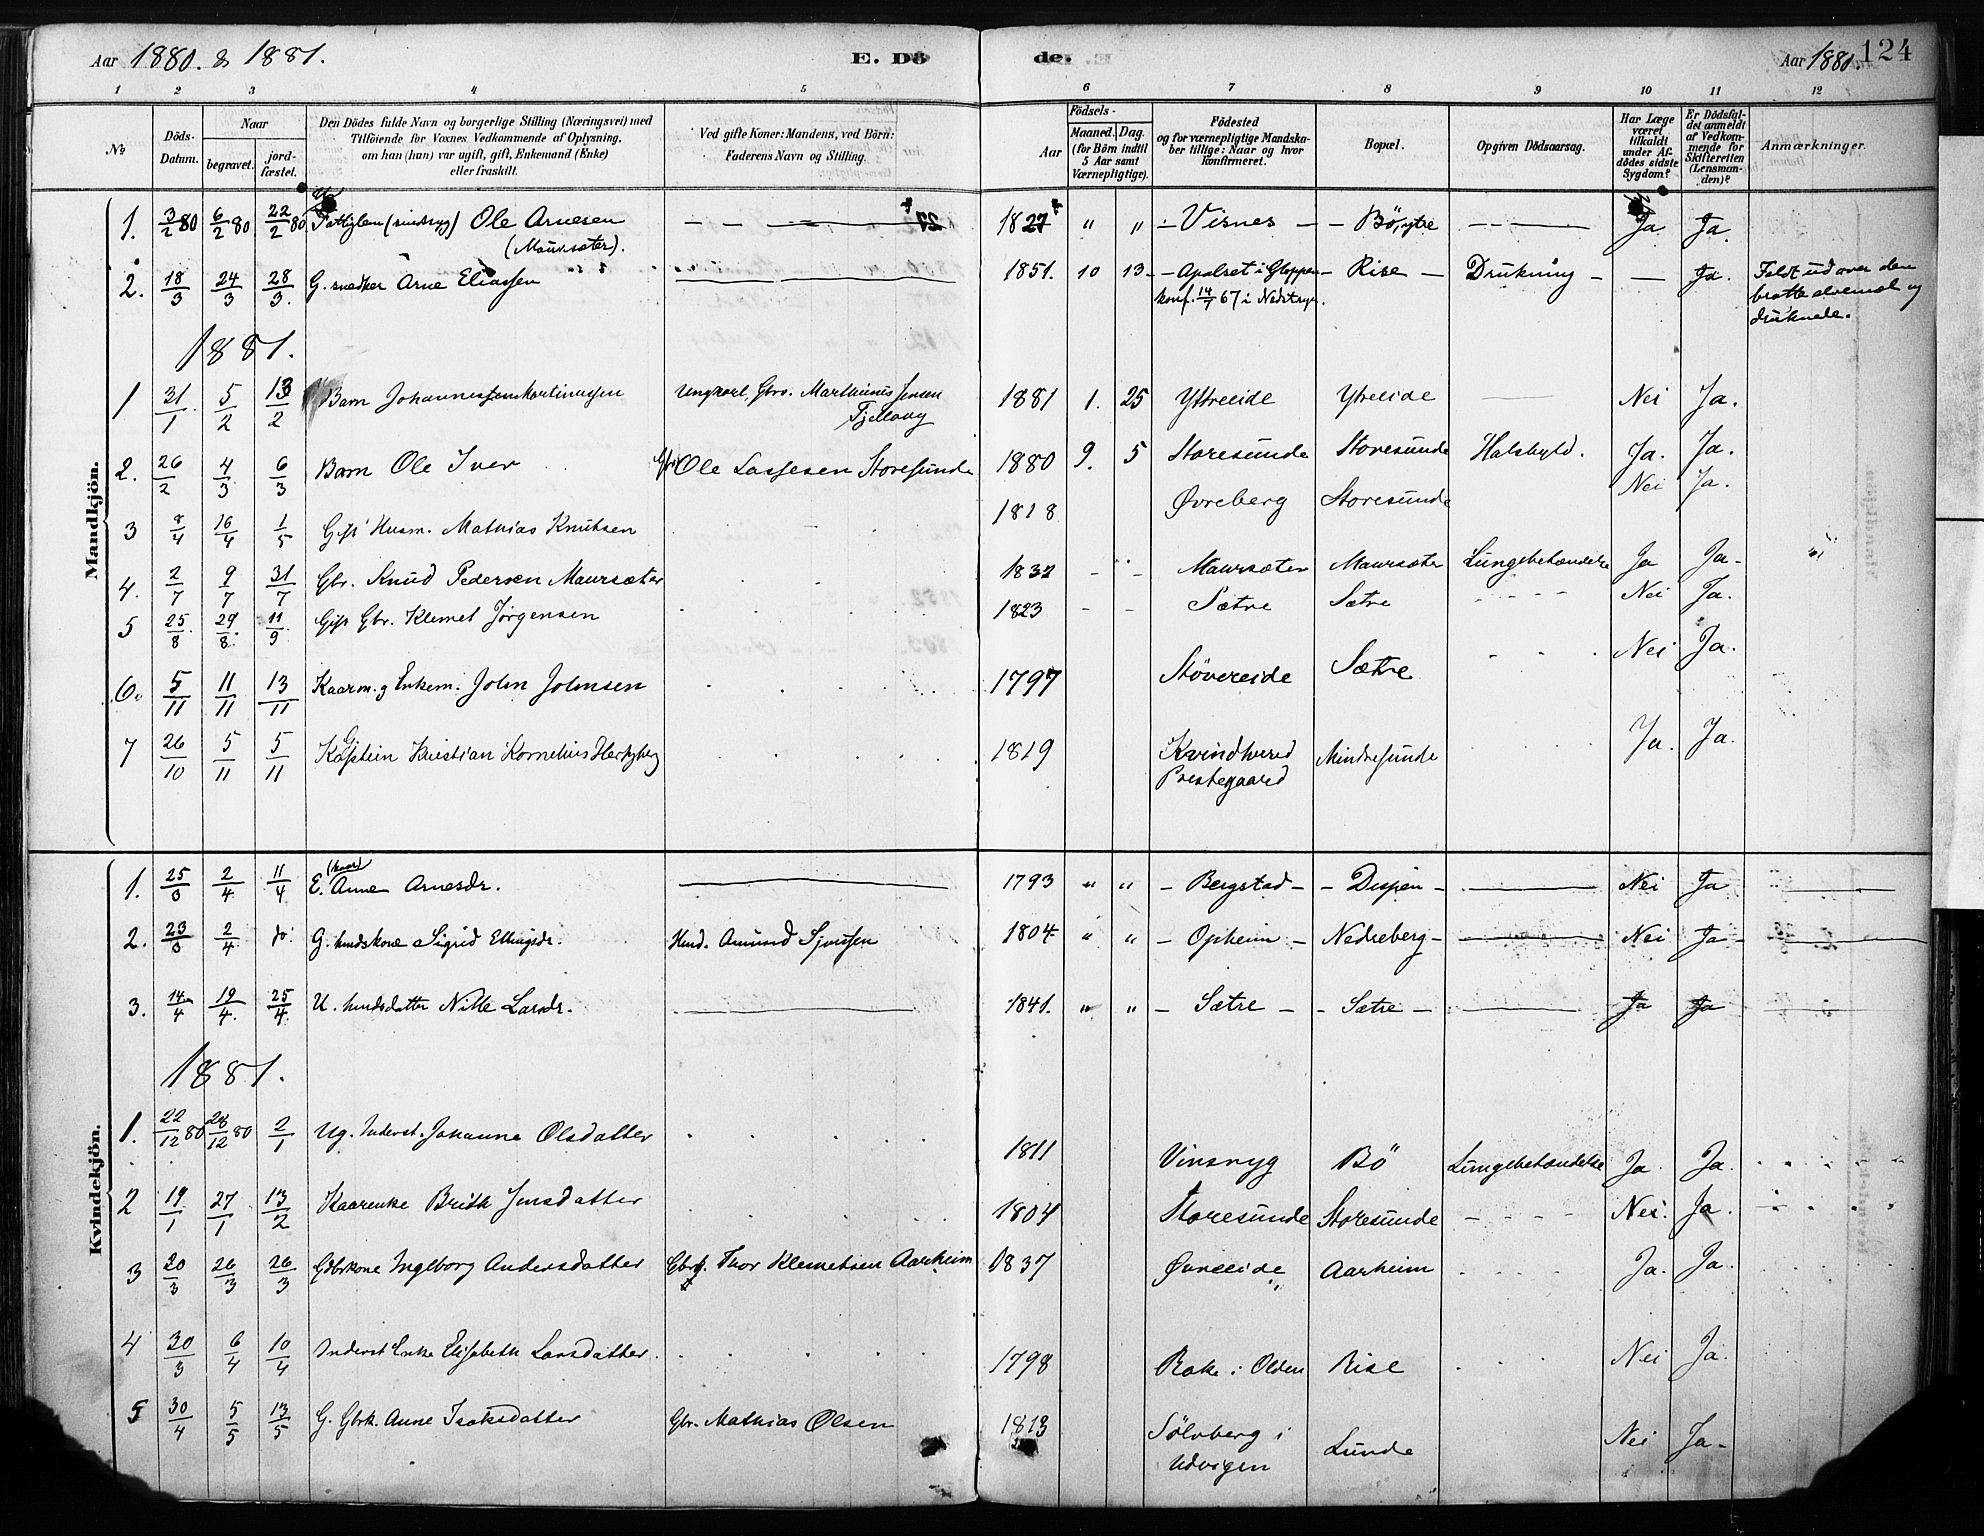 Aar 1880. & 1881. E. Dö de. Aar 1880. 124
1 2 3 4 5 6 7 8 9 10 11 12
No
Döds-Datum.
Naar
begravet.
jord-fæstet.
Den Dödes fulde Navn og borgerlige Stilling (Næringsvei) med
Tilföiende for Voxnes Vedkommende af Oplysning,
om han (hun) var ugift, gift, Enkemand (Enke)
eller fraskilt.
Ved gifte Koner: Mandens, ved Börn:
Faderens Navn og Stilling.
Födsels-
Aar
Maaned. Dag.
(for Börn indtil
5 Aar samt
Værnepligtige).
Födested
og for værnepligtige Mandska-
ber tillige: Naar og hvor
konfirmeret.
Bopæl.
Opgiven Dödsaarsag.
Har Læge
været
tilkaldt
under Af-
dödes sidste
Sygdom?
Er Dödsfal-
det anmeldt
af Vedkom-
mende for
Skifteretten
(Lensman-
den)?
Anmærkninger.
Mandkjön.
1. 3/2 80 6/2 80 22/2 80 Fattiglem (sindsyg) Ole Arnesen 1827 " " Visnes Bö, ytre Ja Ja.
(Maursæter).
2. 18/3 24/3 28/3. G. snedker Arne Eliassen 1851. 10 13 Apalset i Gloppen Rise Drukning Ja. Faldt ud over den
konf. 14/7 67 i Nedstryn. bratte elvemel og
druknede.
1881.
1 31/1 5/2 13/2 Barn Johannes Martinussen Ungkarl, Gbrs. Marthinus Jensen 1881 1. 25 Yttreeide Ytreeide Nei Ja.
Tjellaug
2. 26/2 4/3 6/3 Barn Ole Iver Ole Lassesen Storesunde 1880 9. 5 Storesunde Storesunde Halsbyld. Ja. Ja.
3 8/4 16/4 1/5 Gift Husm. Mathias Knutsen 1818 Øvreberg Storesunde Nei Ja.
4. 2/7 9/7 31/7 Gbr. Knud Pedersen Maursæter 1832 Maursæter Maursæter Lungebetændelse Ja Ja
5 25/8 29/8. 11/9 Gift Gbr. Klemet Jørgensen 1823 Sætre Sætre Nei Ja.
6. 5/11 11/11 13/11 Kaarm. og Enkem. John Johnsen 1797 Stövereide Sætre Nei Ja.
7 26/10 5/11 5/11 Kaptein Kristian Kornelius Hertzberg 1819 Kvindherred Mindresunde Ja. Ja.
Prestegaard
Kvindekjön.
1. 25/3 2/4 11/4 E. (kaar) Anne Arnesdr. 1793 " " Bergstad Despen Nei Ja
2. 23/3 2/4 do. G. husdskone Sigrid Ellingsdr. Husd. Amund Sjurssen 1804 " " Opheim Nedreberg Nei Ja
3. 14/4 19/4. 25/4 U. husdsdatter Nille Larsdr. 1841. " " Sætre Sætre Ja Ja
1881.
1. 22/12 80 28/12 80 2/1 Ug. Inderst. Johanne Olsdatter 1811 Vinsryg Bö Lungebetændelse Ja. Ja.
2 19/1 27/1 13/2 Kaarenke Brithe Jensdatter 1804 Storesunde Storesunde Nei. Ja.
3 20/3 26/3 26/3 Gbrkone Ingeborg Andersdatter Gbrg. Thor Klemetsen Aarheim 1837 Øvreeide Aarheim Ja. Ja.
4 30/3 6/4 10/4 Inderst Enke Elisabeth Larsdatter 1798 Rake i Olden Rise Nei Ja.
5 30/4 5/5 13/5 G. Gbrk. Anne Isaksdatter Gbr. Mathias Olsen 1813 Sölvberg i Lunde Nei Ja
Udvigen